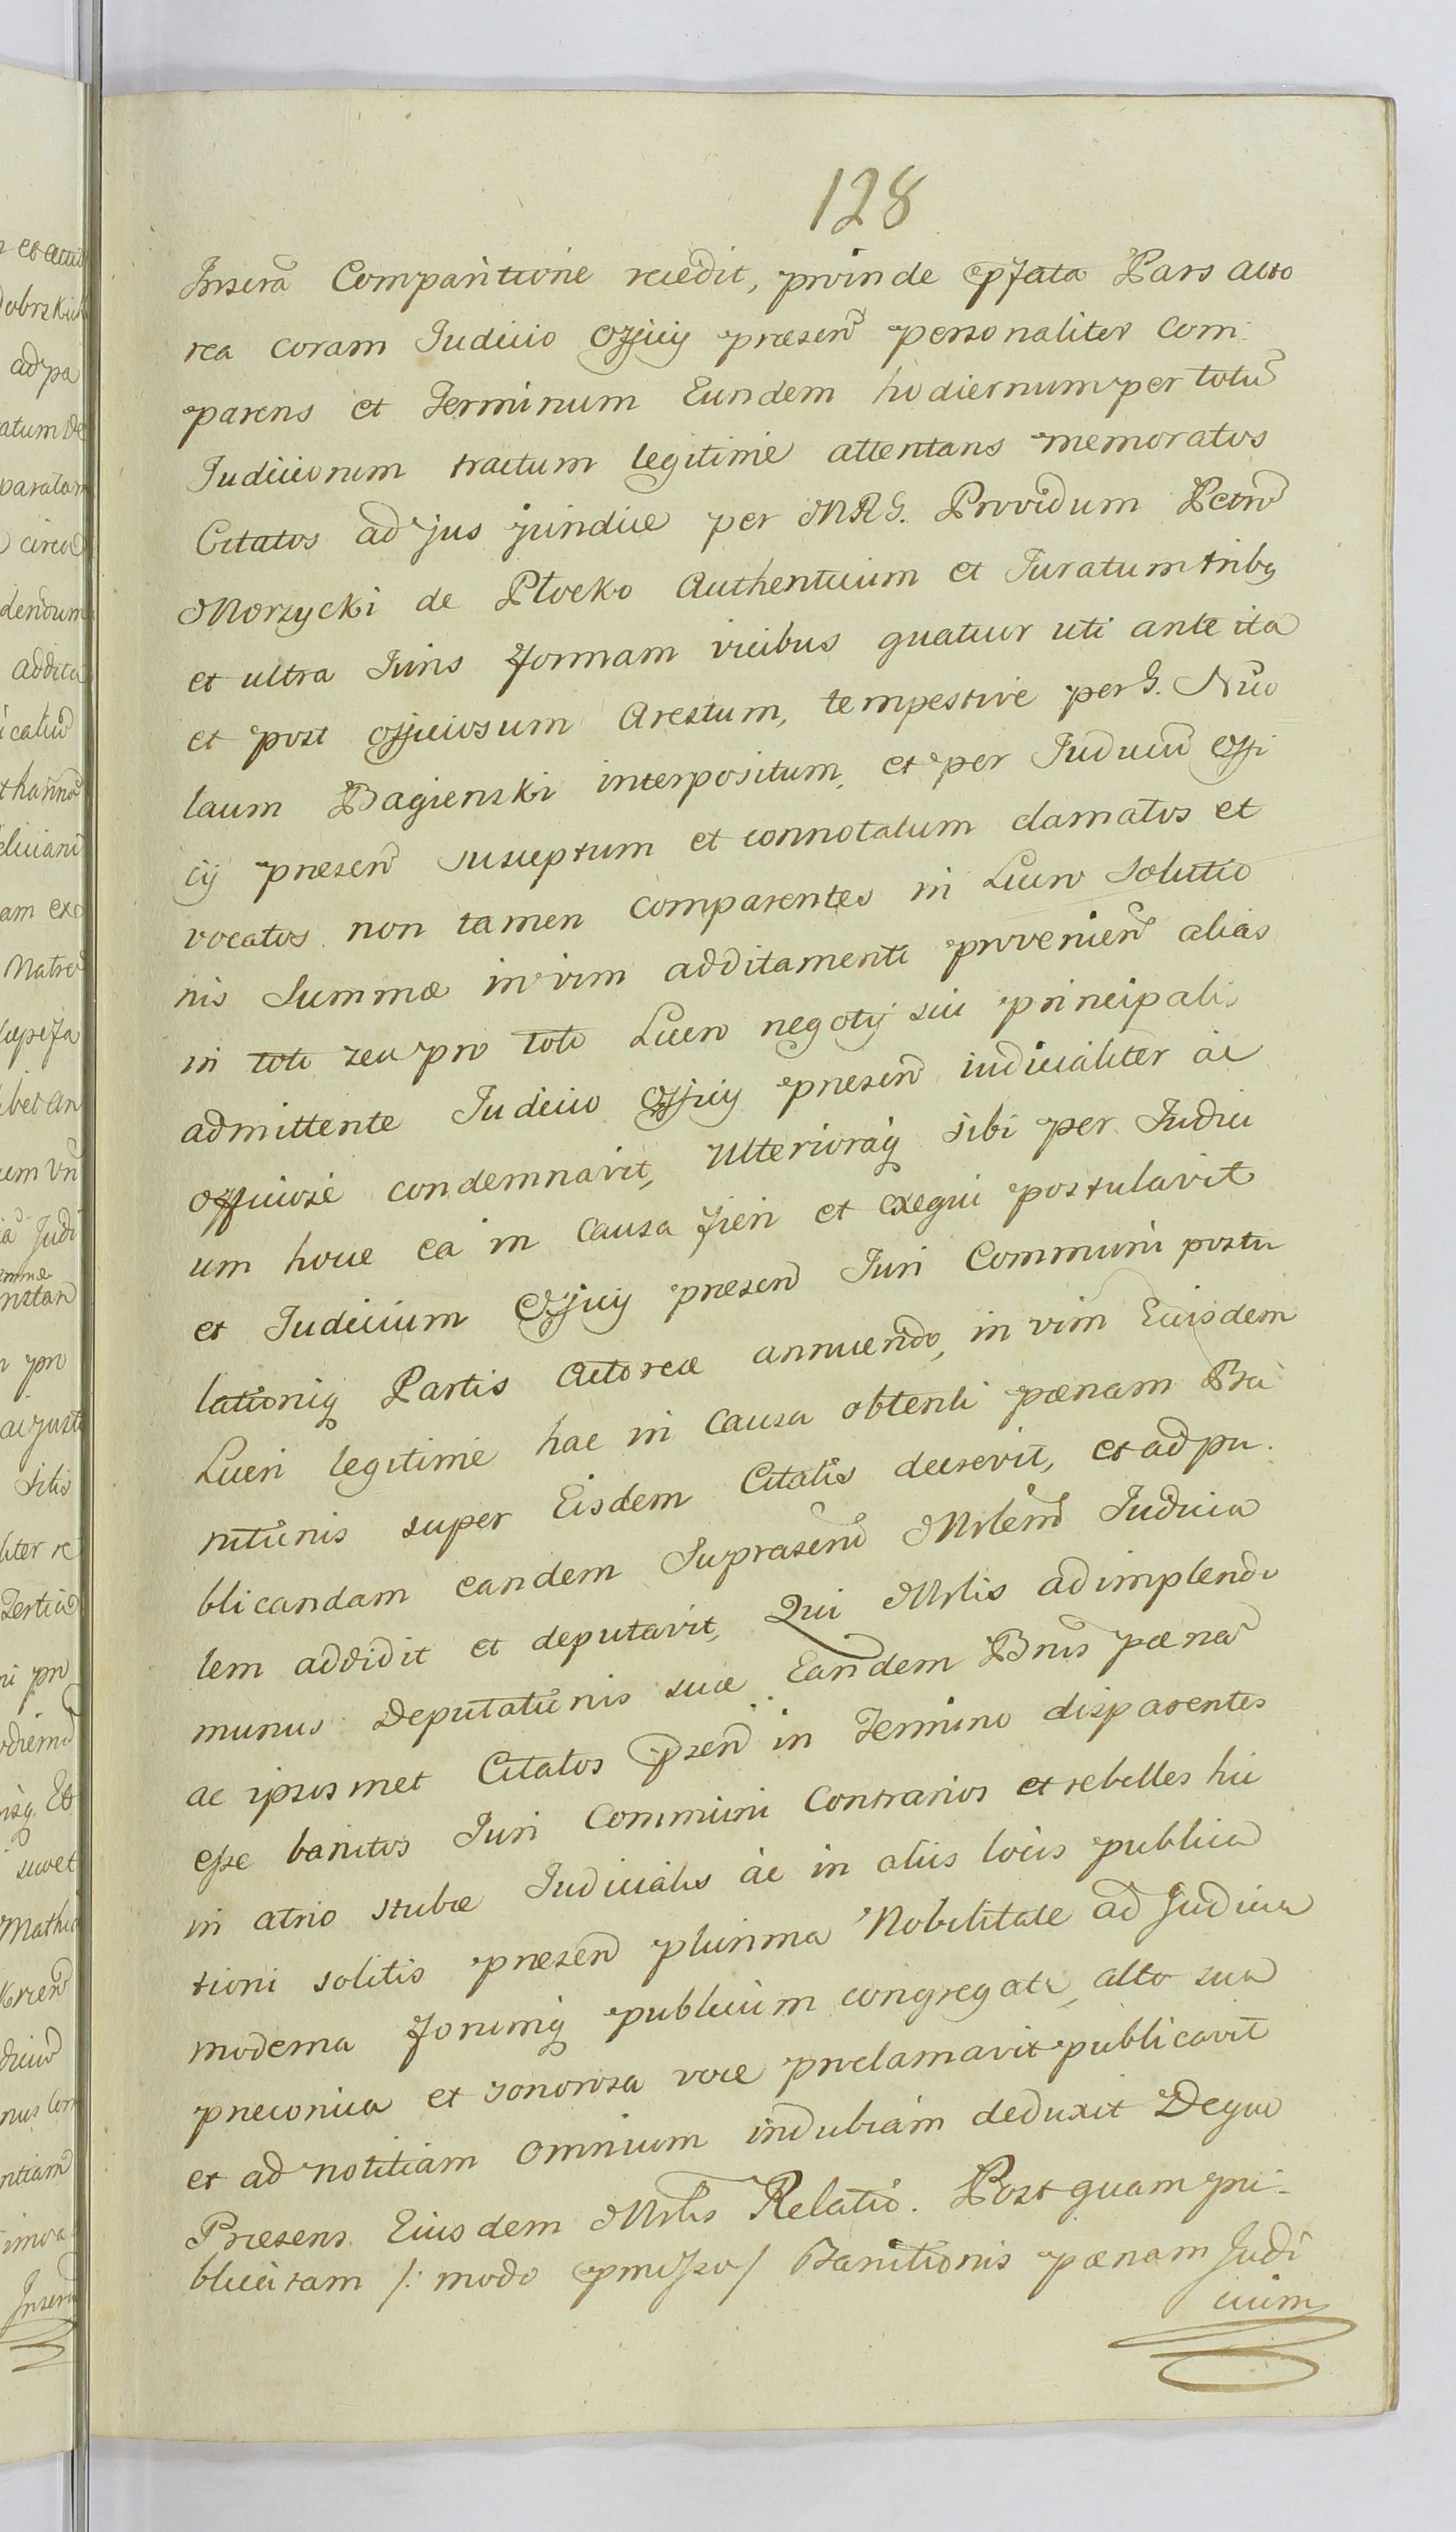 128
Inserã Comparitione recedit, proinde epfata Pars acto
rea coram Judicio Officij præsen̄ personaliter com-
parens et Terminum Eundem hodiernum per totū
Judiciorum tractum legitime attentans memoratos
Citatos ad jus juridice per MRG. Providum Petrū
Morzycki de Plocko Authenticum et Juratum tribꝫ
et ultra Juris formam vicibus quatuor uti ante ita
et post officiosum Arestum, tempestive per G. Nico
laum Bagienski interpositum, et per Judiciū Offi
cij præsen̄ susceptum et connotatum clamatos et
vocatos non tamen comparentes in Lucro Solutio
nis Summæ in vim additamenti provenien̄ alias
in toto seu pro toto Lucro negotij sui principalis
admittente Judicio Officij præsen̄ iudicialiter ac
officiose condemnavit, Ulterioraq̃ sibi per Judici
um hocce ea in causa fieri et exequi postulavit
et Judicium Officij præsen̄ Juri Communi postu
lationiq̃ Partis Actoreæ annuendo, in vim Eiusdem
Lucri legitime hac in causa obtenti pænam Ban̄
nitionis super Eisdem Citatis decrevit, et ad pu-
blicandam eandem Suprascrip̄ Mrlem̄ Judicia
lem addidit et deputavit, Qui Mrlis adimplendo
munus Deputationis suæ Eandem Bn̄is pænā
ac ipsosmet Citatos p̄sen̄ in Termino disparentes
esse banitos Juri Communi Contrarios et rebelles hic
in atrio stubæ Judicialis ac in aliis locis publica
tioni solitis præsen̄ plurima Nobilitate ad Judicia
moderna forumq̃ publicum congregata, alto sua
præconica et sonorosa voce proclamavit publicavit
et ad notitiam omnium indubiam deduxit De quo
Præsens Eiusdem Mrlis Relatio. Postquam pu-
blicatam /: modo epmisso / Banitionis pænam Judi
cium